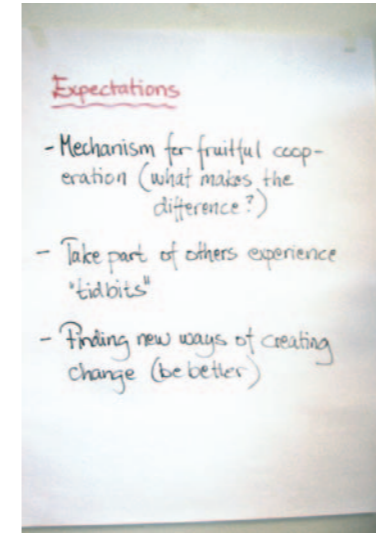 Expectations
- Mechanism for fruitful coop-
eration (what makes the
difference?)
- Take part of others experience
"tidbits"
- Finding new ways of creating
change (be better)